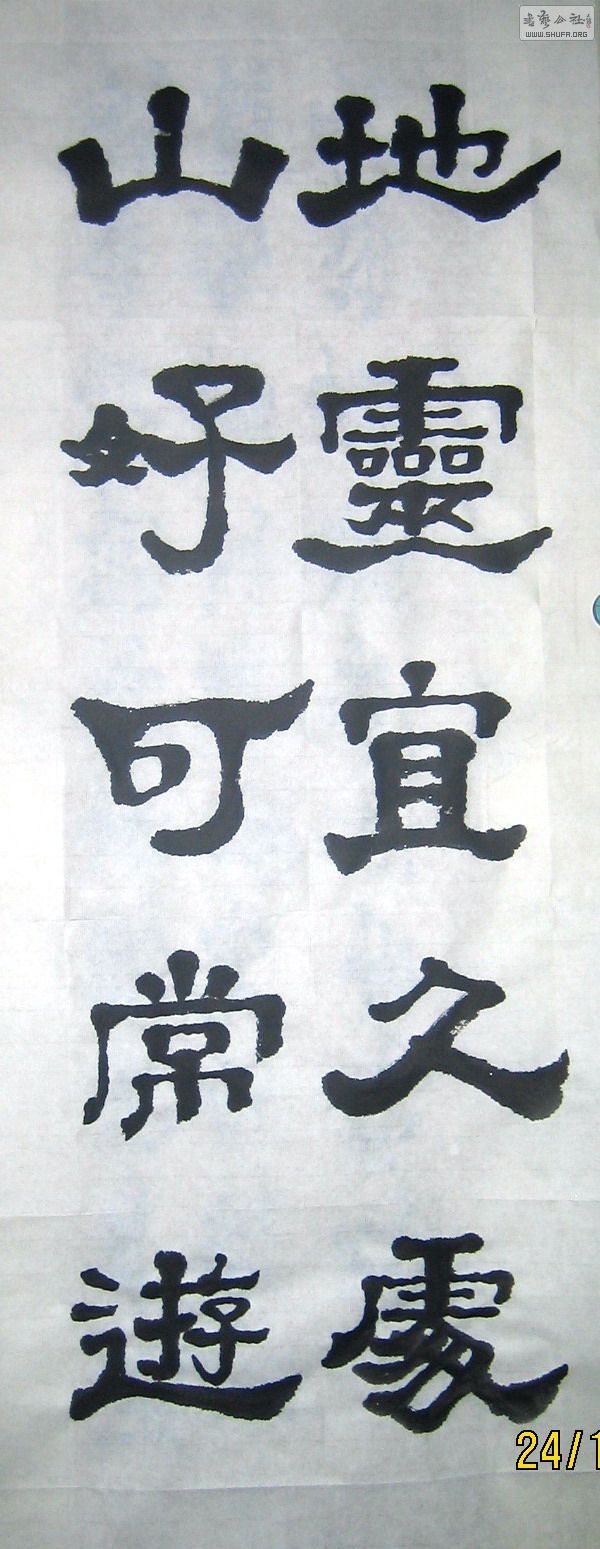 地靈宜久處
山好可常遊
書藝公社
WWW.SHUFA.ORG
24/1